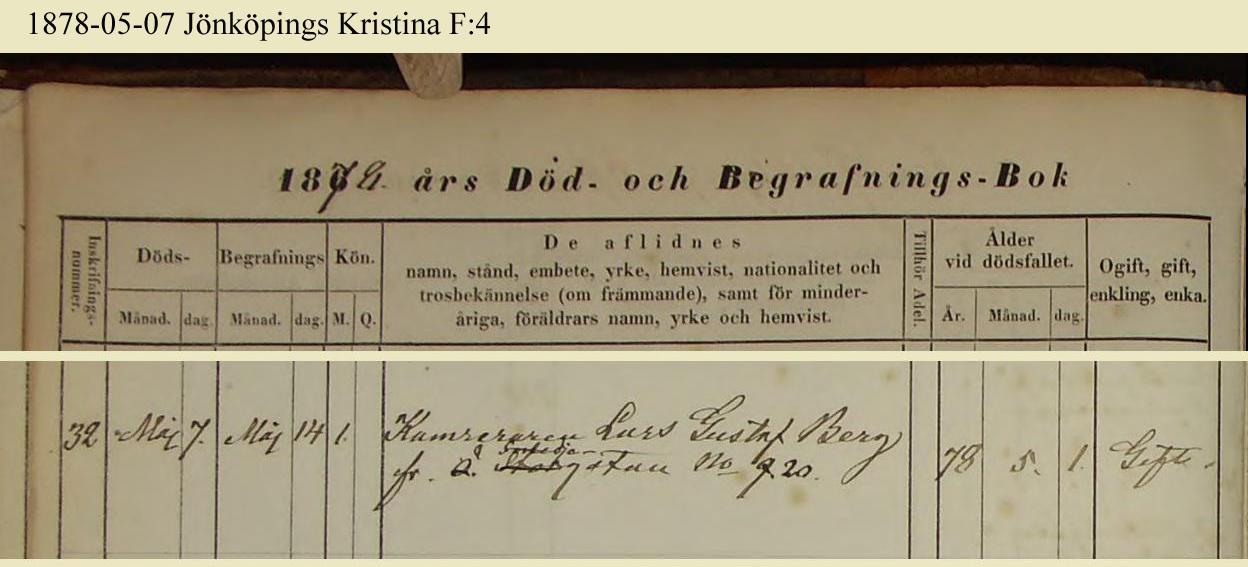 1878-05-07 Jönköpings Kristina F:4
1878. års Död- och Begrafnings-Bok
Inskrifnings-
nummer.
Döds-
Begrafnings
Kön.
De aflidnes
namn, stånd, embete, yrke, hemvist, nationalitet och
trosbekännelse (om främmande), samt för minder-
åriga, föräldrars namn, yrke och hemvist.
Tillhör Adel.
Ålder
vid dödsfallet.
Ogift, gift,
enkling, enka.
Månad. dag. Månad. dag. M. Q. År. Månad. dag.
32 Maj 7. Maj 14 1. Kamreraren Lars Gustaf Berg
fr. gatan No 20. 78 5. 1. Gift.